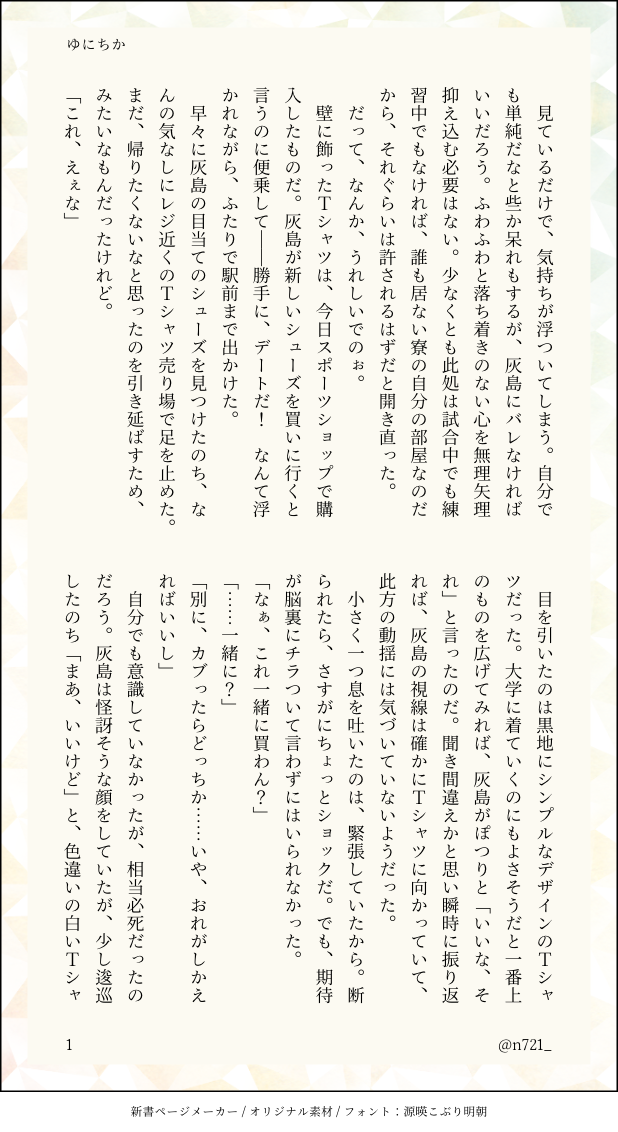 ゆにちか
　見ているだけで、気持ちが浮ついてしまう。自分で
も単純だなと些か呆れもするが、灰島にバレなければ
いいだろう。ふわふわと落ち着きのない心を無理矢理
抑え込む必要はない。少なくとも此処は試合中でも練
習中でもなければ、誰も居ない寮の自分の部屋なのだ
から、それぐらいは許されるはずだと開き直った。
　だって、なんか、うれしいでのぉ。
　壁に飾ったTシャツは、今日スポーツショップで購
入したものだ。灰島が新しいシューズを買いに行くと
言うのに便乗して――勝手に、デートだ！　なんて浮
かれながら、ふたりで駅前まで出かけた。
　早々に灰島の目当てのシューズを見つけたのち、な
んの気なしにレジ近くのTシャツ売り場で足を止めた。
まだ、帰りたくないなと思ったのを引き延ばすため、
みたいなもんだったけれど。
「これ、えぇな」
　目を引いたのは黒地にシンプルなデザインのTシャ
ツだった。大学に着ていくのにもよさそうだと一番上
のものを広げてみれば、灰島がぽつりと「いいな、そ
れ」と言ったのだ。聞き間違えかと思い瞬時に振り返
れば、灰島の視線は確かにTシャツに向かっていて、
此方の動揺には気づいていないようだった。
　小さく一つ息を吐いたのは、緊張していたから。断
られたら、さすがにちょっとショックだ。でも、期待
が脳裏にチラついて言わずにはいられなかった。
「なぁ、これ一緒に買わん？」
「……一緒に？」
「別に、カブったらどっちか……いや、おれがしかえ
ればいいし」
　自分でも意識していなかったが、相当必死だったの
だろう。灰島は怪訝そうな顔をしていたが、少し逡巡
したのち「まあ、いいけど」と、色違いの白いTシャ
1
@n721_
新書ページメーカー / オリジナル素材 / フォント：源暎こぶり明朝